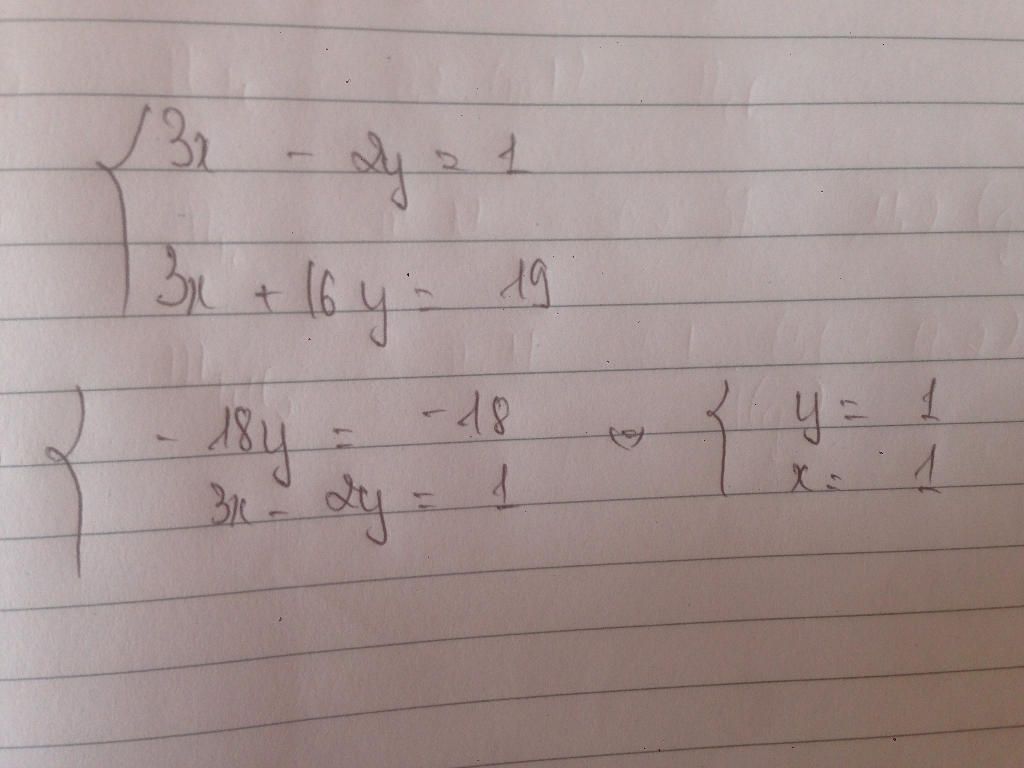 3x - 2y = 1
3x + 16y = 19
- 18y = -18 ⇔ y = 1
3x - 2y = 1 x = 1